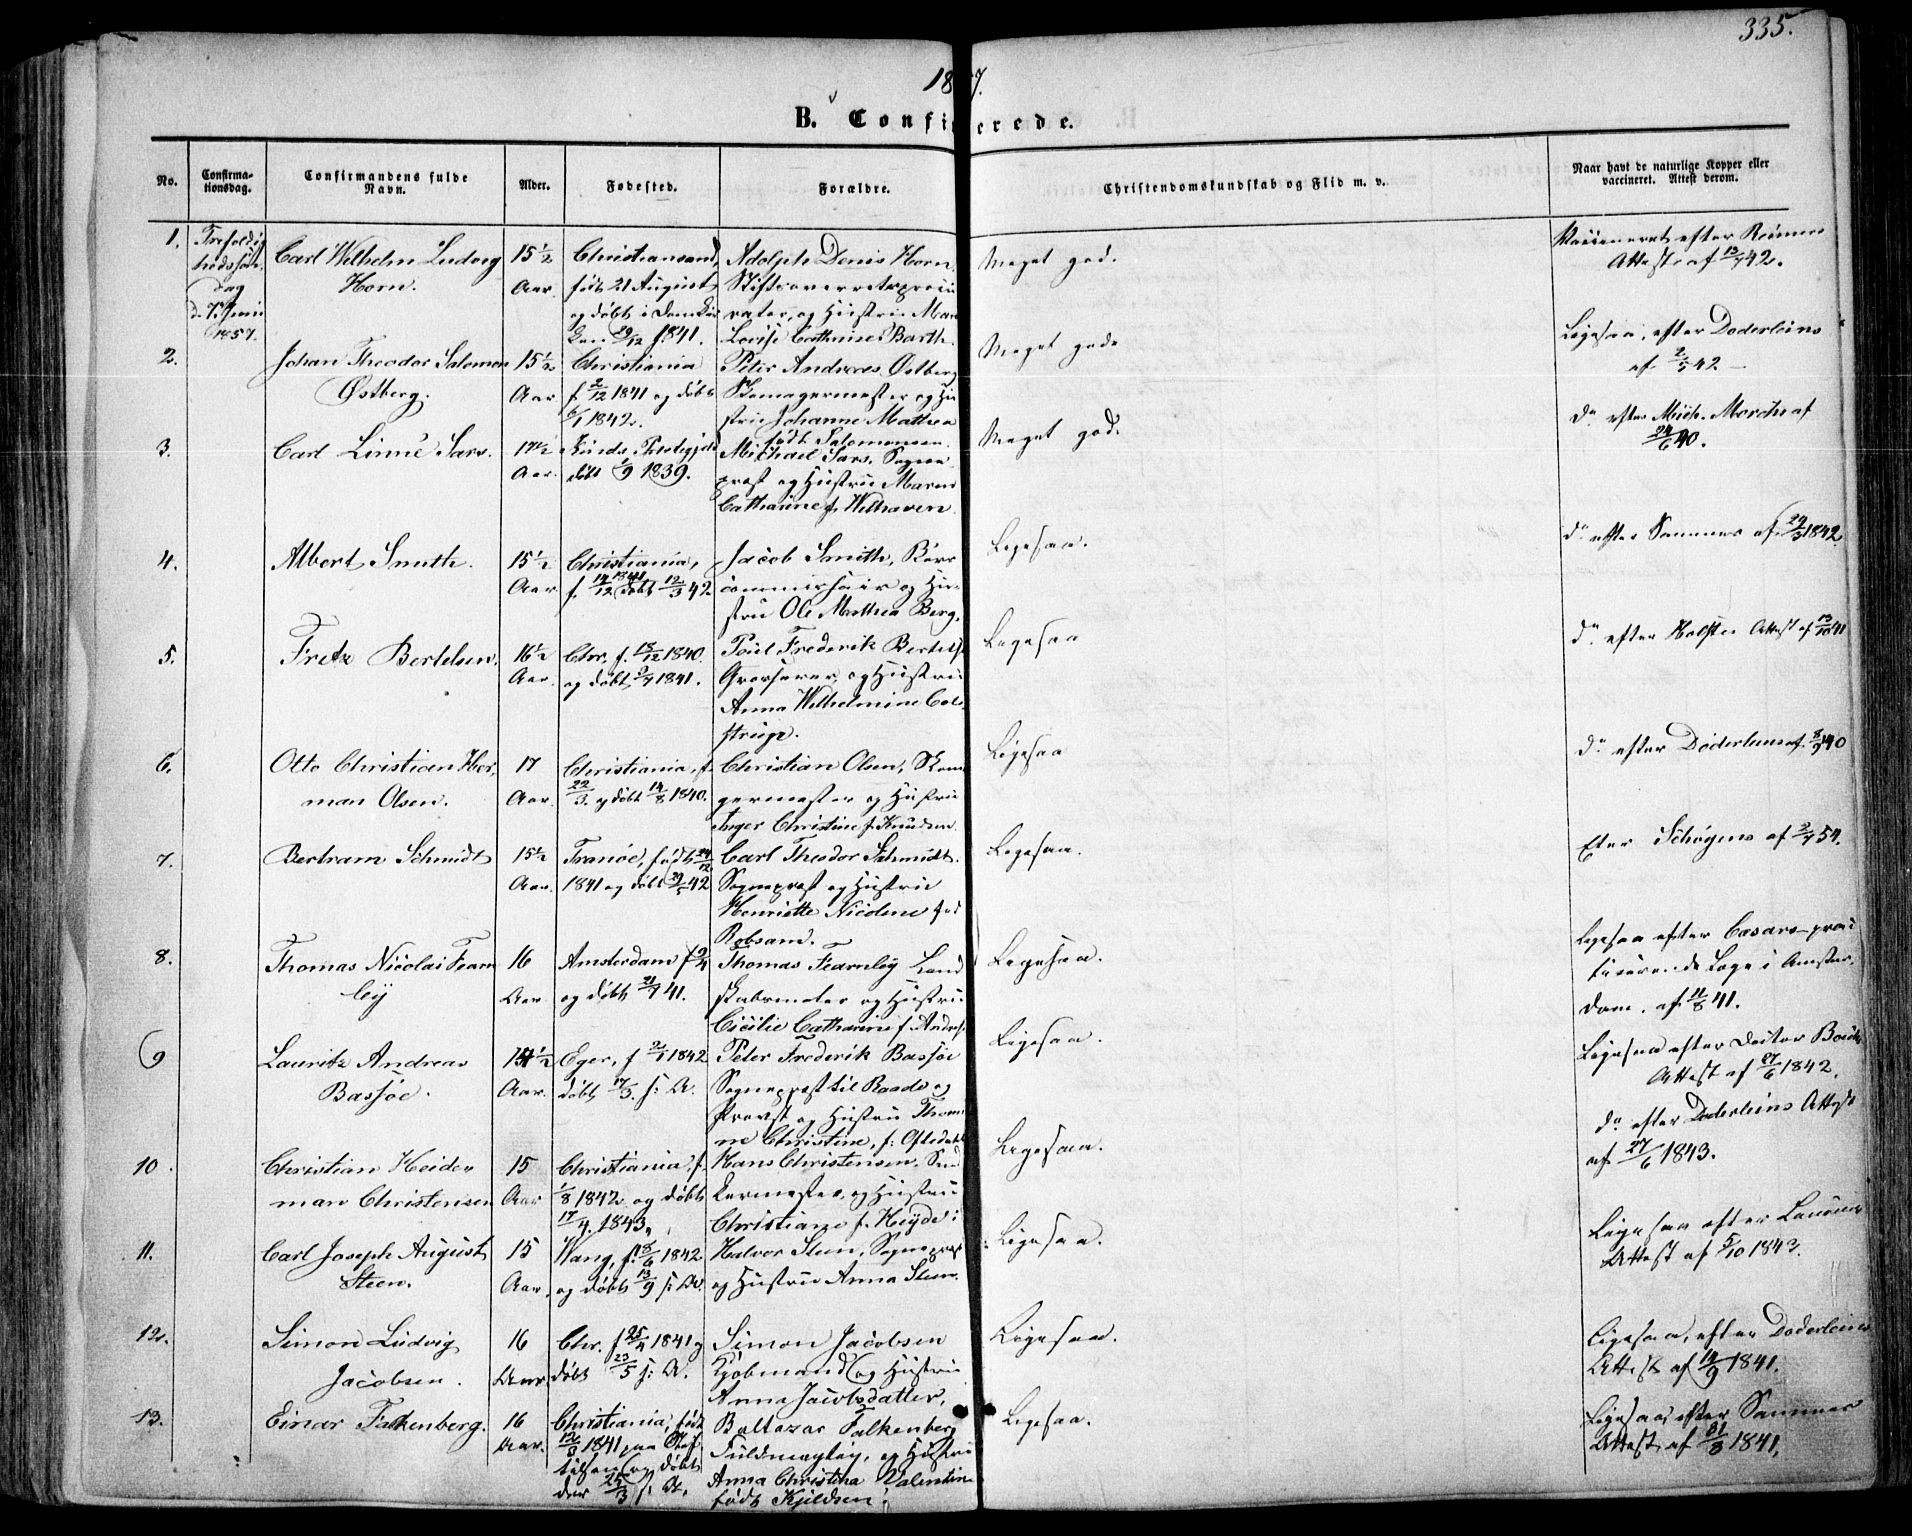 335.
18 7.
B. Confi erede.
No.
Confirma-
tionsdag.
Confirmandens fulde
Navn.
Alder.
Fødested.
Forældre.
Christendomskundskab og Flid m. v.
Naar havt de naturlige Kopper eller
vaccineret. Attest derom.
1.
Trefoldig
hedssøn
dag
d. 7. Juni
1857.
Carl Wilhelm Ludvig
Horn.
15 1/2
Aar
Christiansand,
født 21 August
og døbt i Domkir
ken 29/12 1841.
Adolph Denis Horn
Stiftsoverretsprocu
rator, og Hustru
Lovise Cathrine Barth.
Meget god.
Vaccineret efter
Attest af 13/7 42.
2.
Johan Theodor Salomon
Østberg.
15 1/2
Aar
Christiania
f. 2/12 1841 og døbt
6/1 1842.
Peter Andreas Østberg
Skomagermester og Hu
stru Johanne Mathea
født Salomonsen.
Meget god
Ligesaa, efter Døderleins
af 2/5 42
3.
Carl Linné Sars.
17 1/2
Aar.
Kinds Præstegjeld
døbt 1/9 1839.
Michael Sars, Sogne
præst og Hustru Maren
Cathrine f. Welhaven.
Meget god.
Do efter Mich. Morch af
24/6 40.
4.
Albert Smith.
15 1/2
Aar
Christiania,
f. 14/12 1841 døbt 12/3 42
Jacob Smith,
commissair og Hu-
stru Ole Mathea Berg.
Ligesaa.
Do efter Sammes af 29/5 1842.
5.
Fretz Bertelsen.
16 1/2
Aar.
Chr. f. 15/12 1840.
og døbt 9/7 1841.
Poul Frederik Bertels
Grosserer og Hustru
Anna Wilhelmine Col
strup.
Ligesaa
Do efter Holsts Attest af 13/10 41
6.
Otto Christian Her,
man Olsen.
17
Aar.
Christiania, f.
22/3. og døbt 14/8 1840.
Christian Olsen, Skom
germester og Hustru
Inger Christine f. Knudsen.
Ligesaa
Do efter Døderleins af 8/9 40
7.
Bertram Schmidt
15 1/2
Aar.
Tranöe, født 24/12
1841 og døbt 29/5 42
Carl Theodor Schmidt.
Sognepræst og Hustru
Henriette Nicoline født
Robsam.
Ligesaa.
Efter Schøgens af 2/7 54.
8.
Thomas Nicolai Fearn
ley
16
Aar.
Amsterdam f. 9/4
og døbt 21/7 41.
Thomas Fearnley Land
skabsmaler og Hustru
Cicilie Catharine f. Andres
Ligesaa.
Ligesaa efter Cæsars prac
tiserende Læge i Amster,
dam. af 11/8 41.
9
Lauritz Andreas
Bassøe.
15 1/2
Aar.
Eger, f 2/1 1842
døbt 17/3 s: A.
Peter Frederik Bassøe
Sognepræst til Raade og
Provst og Hustru Thom
ne Christine, f: Oftedahl
Ligesaa.
Ligesaa efter Doctor
Attest af 27/6 1842.
10.
Christian Heider
man Christensen
15
Aar
Christiania f.
1/8 1842 og døbt
17/4. 1843.
Hans Christensen, Snd
kermester, og Hustru
Christiane f. Heyde:
Ligesaa.
Do efter Døderleins Attest
af 27/6 1843.
11.
Carl Joseph August
Steen.
15
Aar.
Wang, f. 8/6 1842
og døbt 13/9 s: A.
Halvor Steen, Sognepræst
og Hustru Anna Steen.
Ligesaa.
Ligesaa efter
Attest af 5/10 1843.
12.
Simon Ludvig
Jacobsen.
16
Aar
Chr. f 25/4 1841 og
døbt 23/5 s: A.
Simon Jacobsen
Kjøbmand og Hustru
Anna Jacobsdatter,
Ligesaa.
Ligesaa, efter Døderleins
Attest af 14/9 1841.
13.
Einar Falkenberg.
16
Aar.
Christiania, født
12/3 1841 paa Stif
telsen og døbt
der 25/3 s. A.
Baltazar Falkenberg
Fuldmægtig, og Hustru
Anna Christina Valentine
født Kjeldsen:
Ligesaa.
Ligesaa efter Sammes
Attest af 31/8 1841.